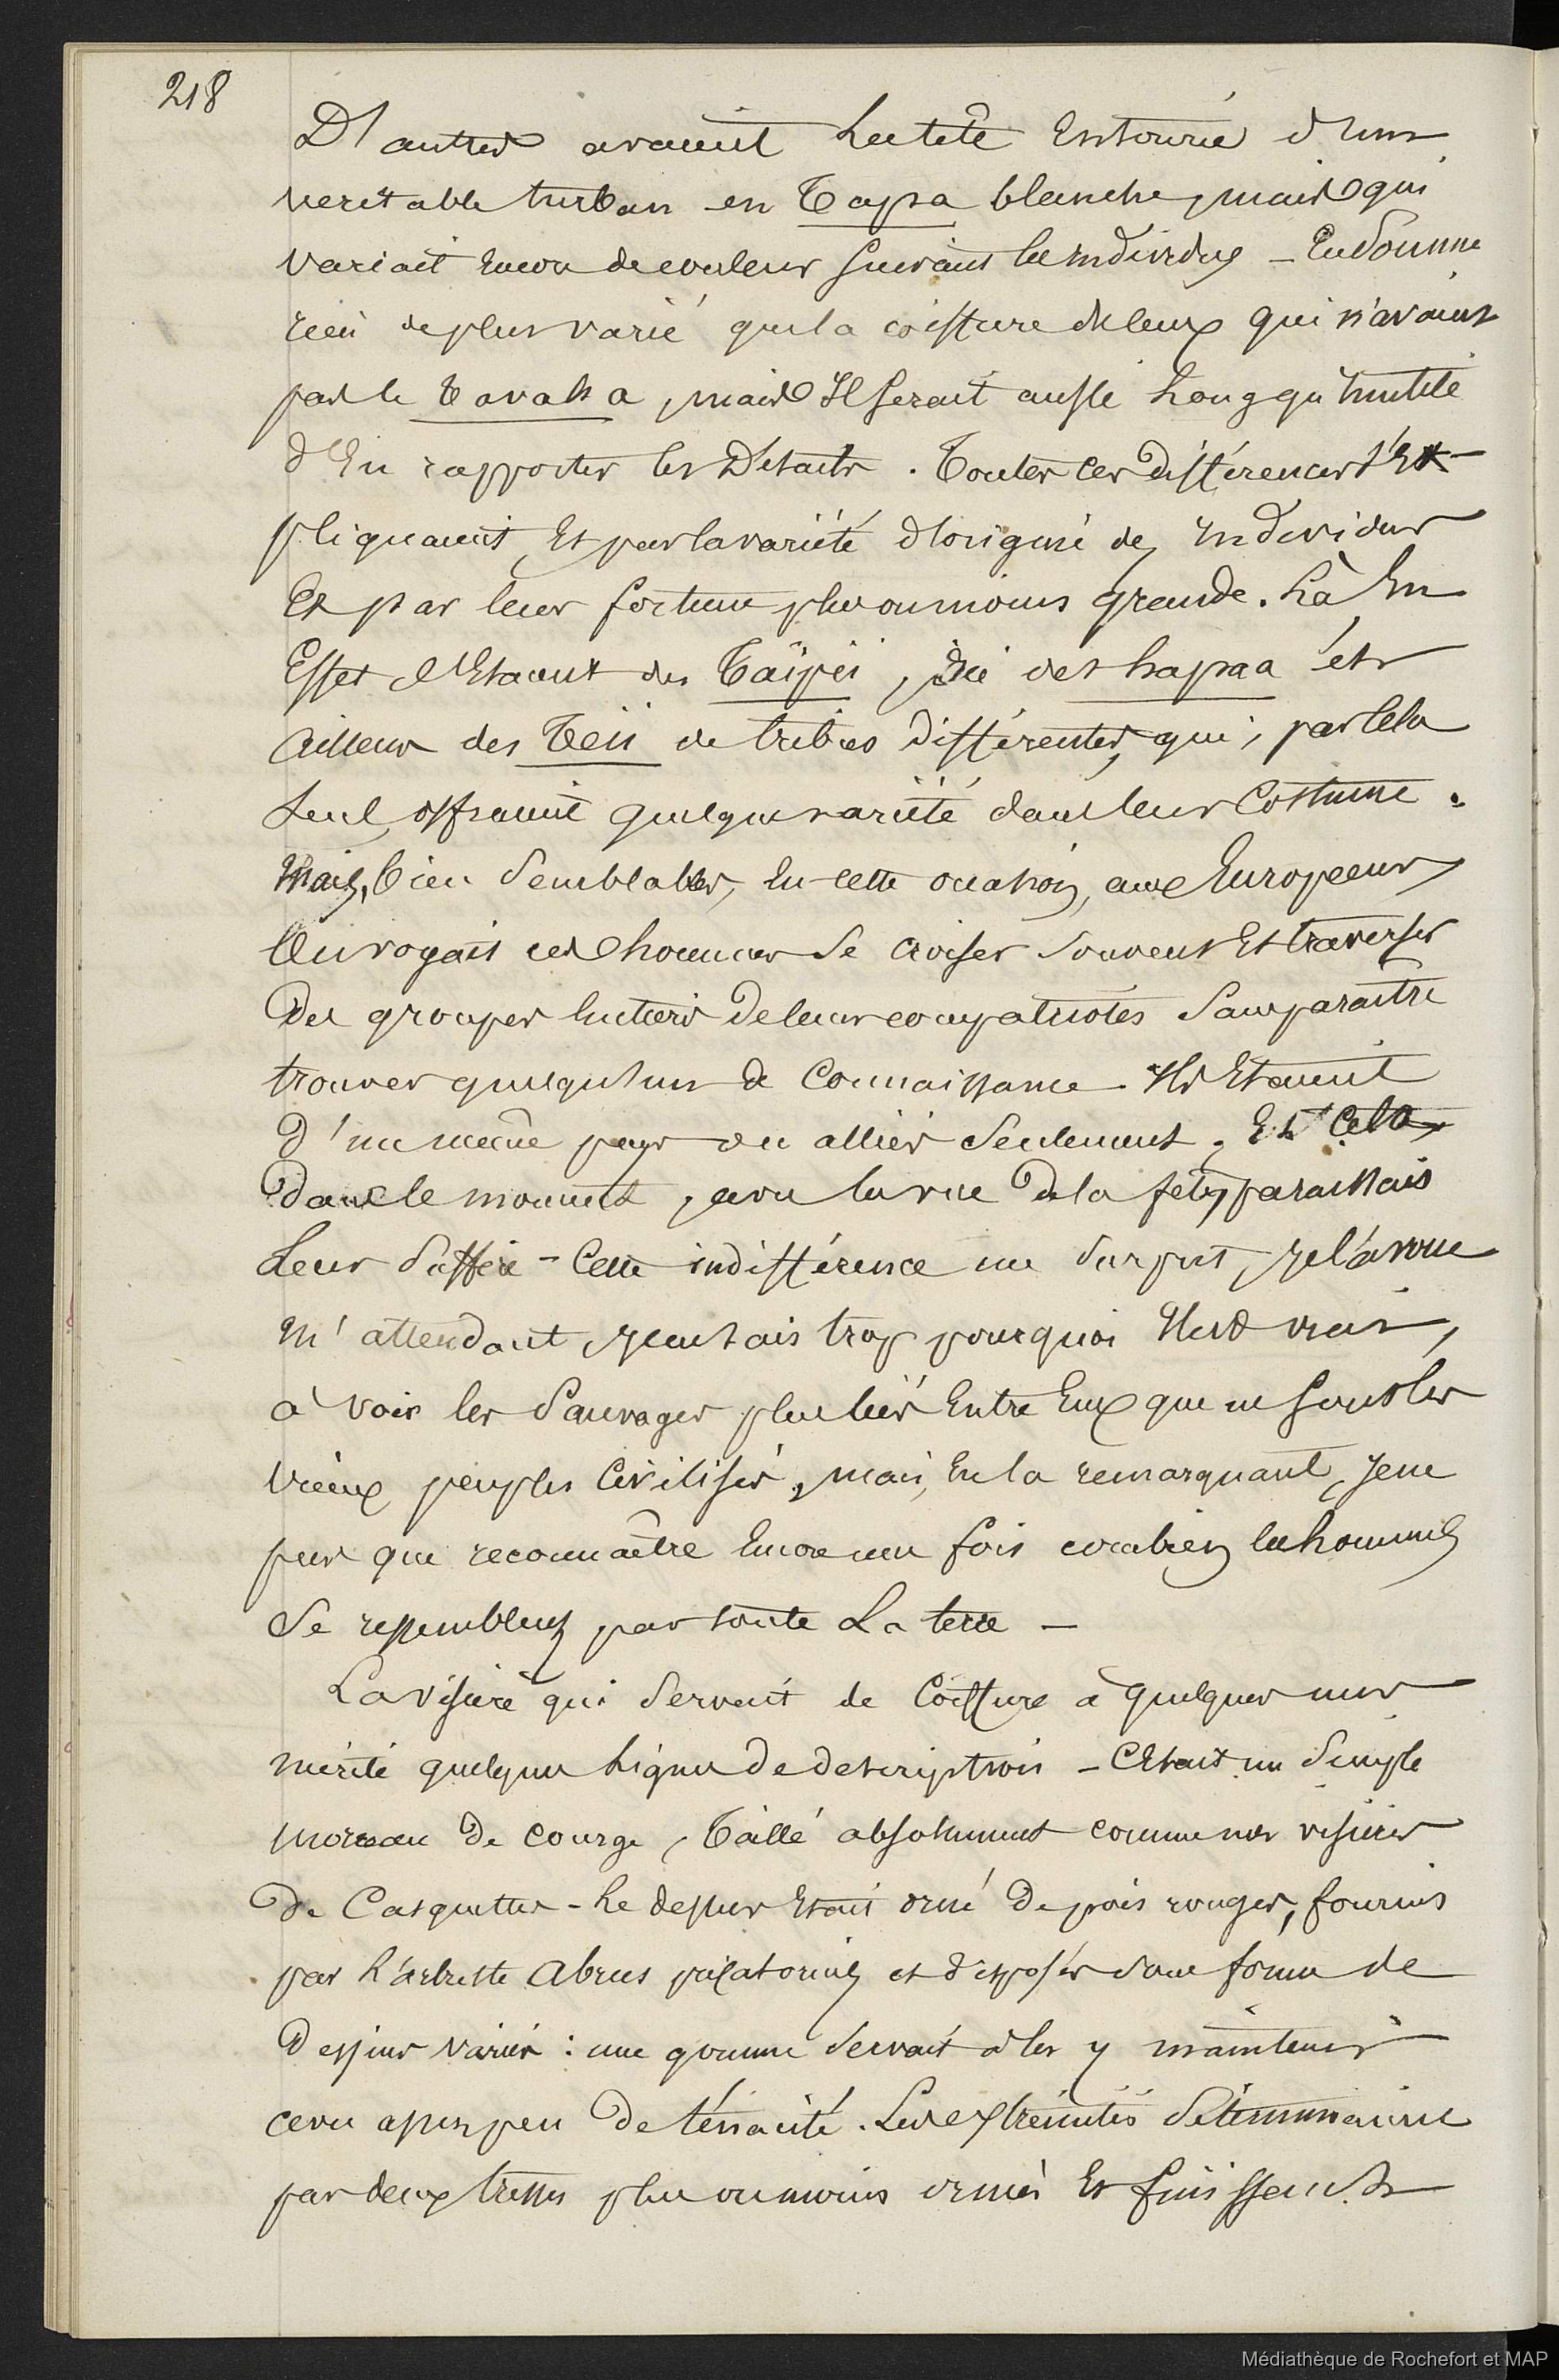 218
D'autres avaient la tête Entourée d'un
veritable turban en Tapa blanche, mais qui
variait Encore de couleur suivant les individus – En Somme
rien de plus varié que la coiffure de ceux qui n'avaient
pas le Tavaha, mais Il serait aussi Long qu'inutile
d'En rapporter les Détails. Toutes ces différences s'Ex-
pliquaient Et par la variété d'origine des individus
Et par leur fortune plus ou moins grande. Là En
Effet C'Etaient des Taïpis, Ici des hapaa Et
ailleurs des Teïi de tribus différentes, qui, par cela
Seul, offraient quelque variété dans leur Costume.
Mais, bien Semblables, En cette occasion, aux Européens
On voyait ces hommes Se croiser Souvent Et traverser
Des groupes Entiers De leurs compatriotes Sans paraître
trouver quelqu'un de Connaissance. Ils Etaient
D'un même pays ou alliés Seulement, Et Cela,
Dans le moment, avec la vue De la fête, paraissait
Leur Suffire – Cette indifférence me Surprit, je l'avoue
M'attendant, je ne sais trop pourquoi Il est vrai,
à voir les Sauvages plus liés Entre Eux que ne Sont les
vieux peuples Civilisés, mais, En la remarquant, je ne
pus que reconnaître Encore une fois combien les hommes
Se ressemblent par toute La terre –
La visière qui Servait de Coiffure à quelques uns
mérite quelques Lignes De description – C'Etait un Simple
morceau De courge, Taillé absolument comme nos visières
De Casquettes – Le dessus Etait orné De pois rouges, fournis
par L'arbuste Abrus precatorius et disposés Sous forme de
Dessins variés : une gomme Servait à les y maintenir
avec assez peu De ténacité. Les Extrémités Se terminaient
par deux tresses plus ou moins ornées Et finissant